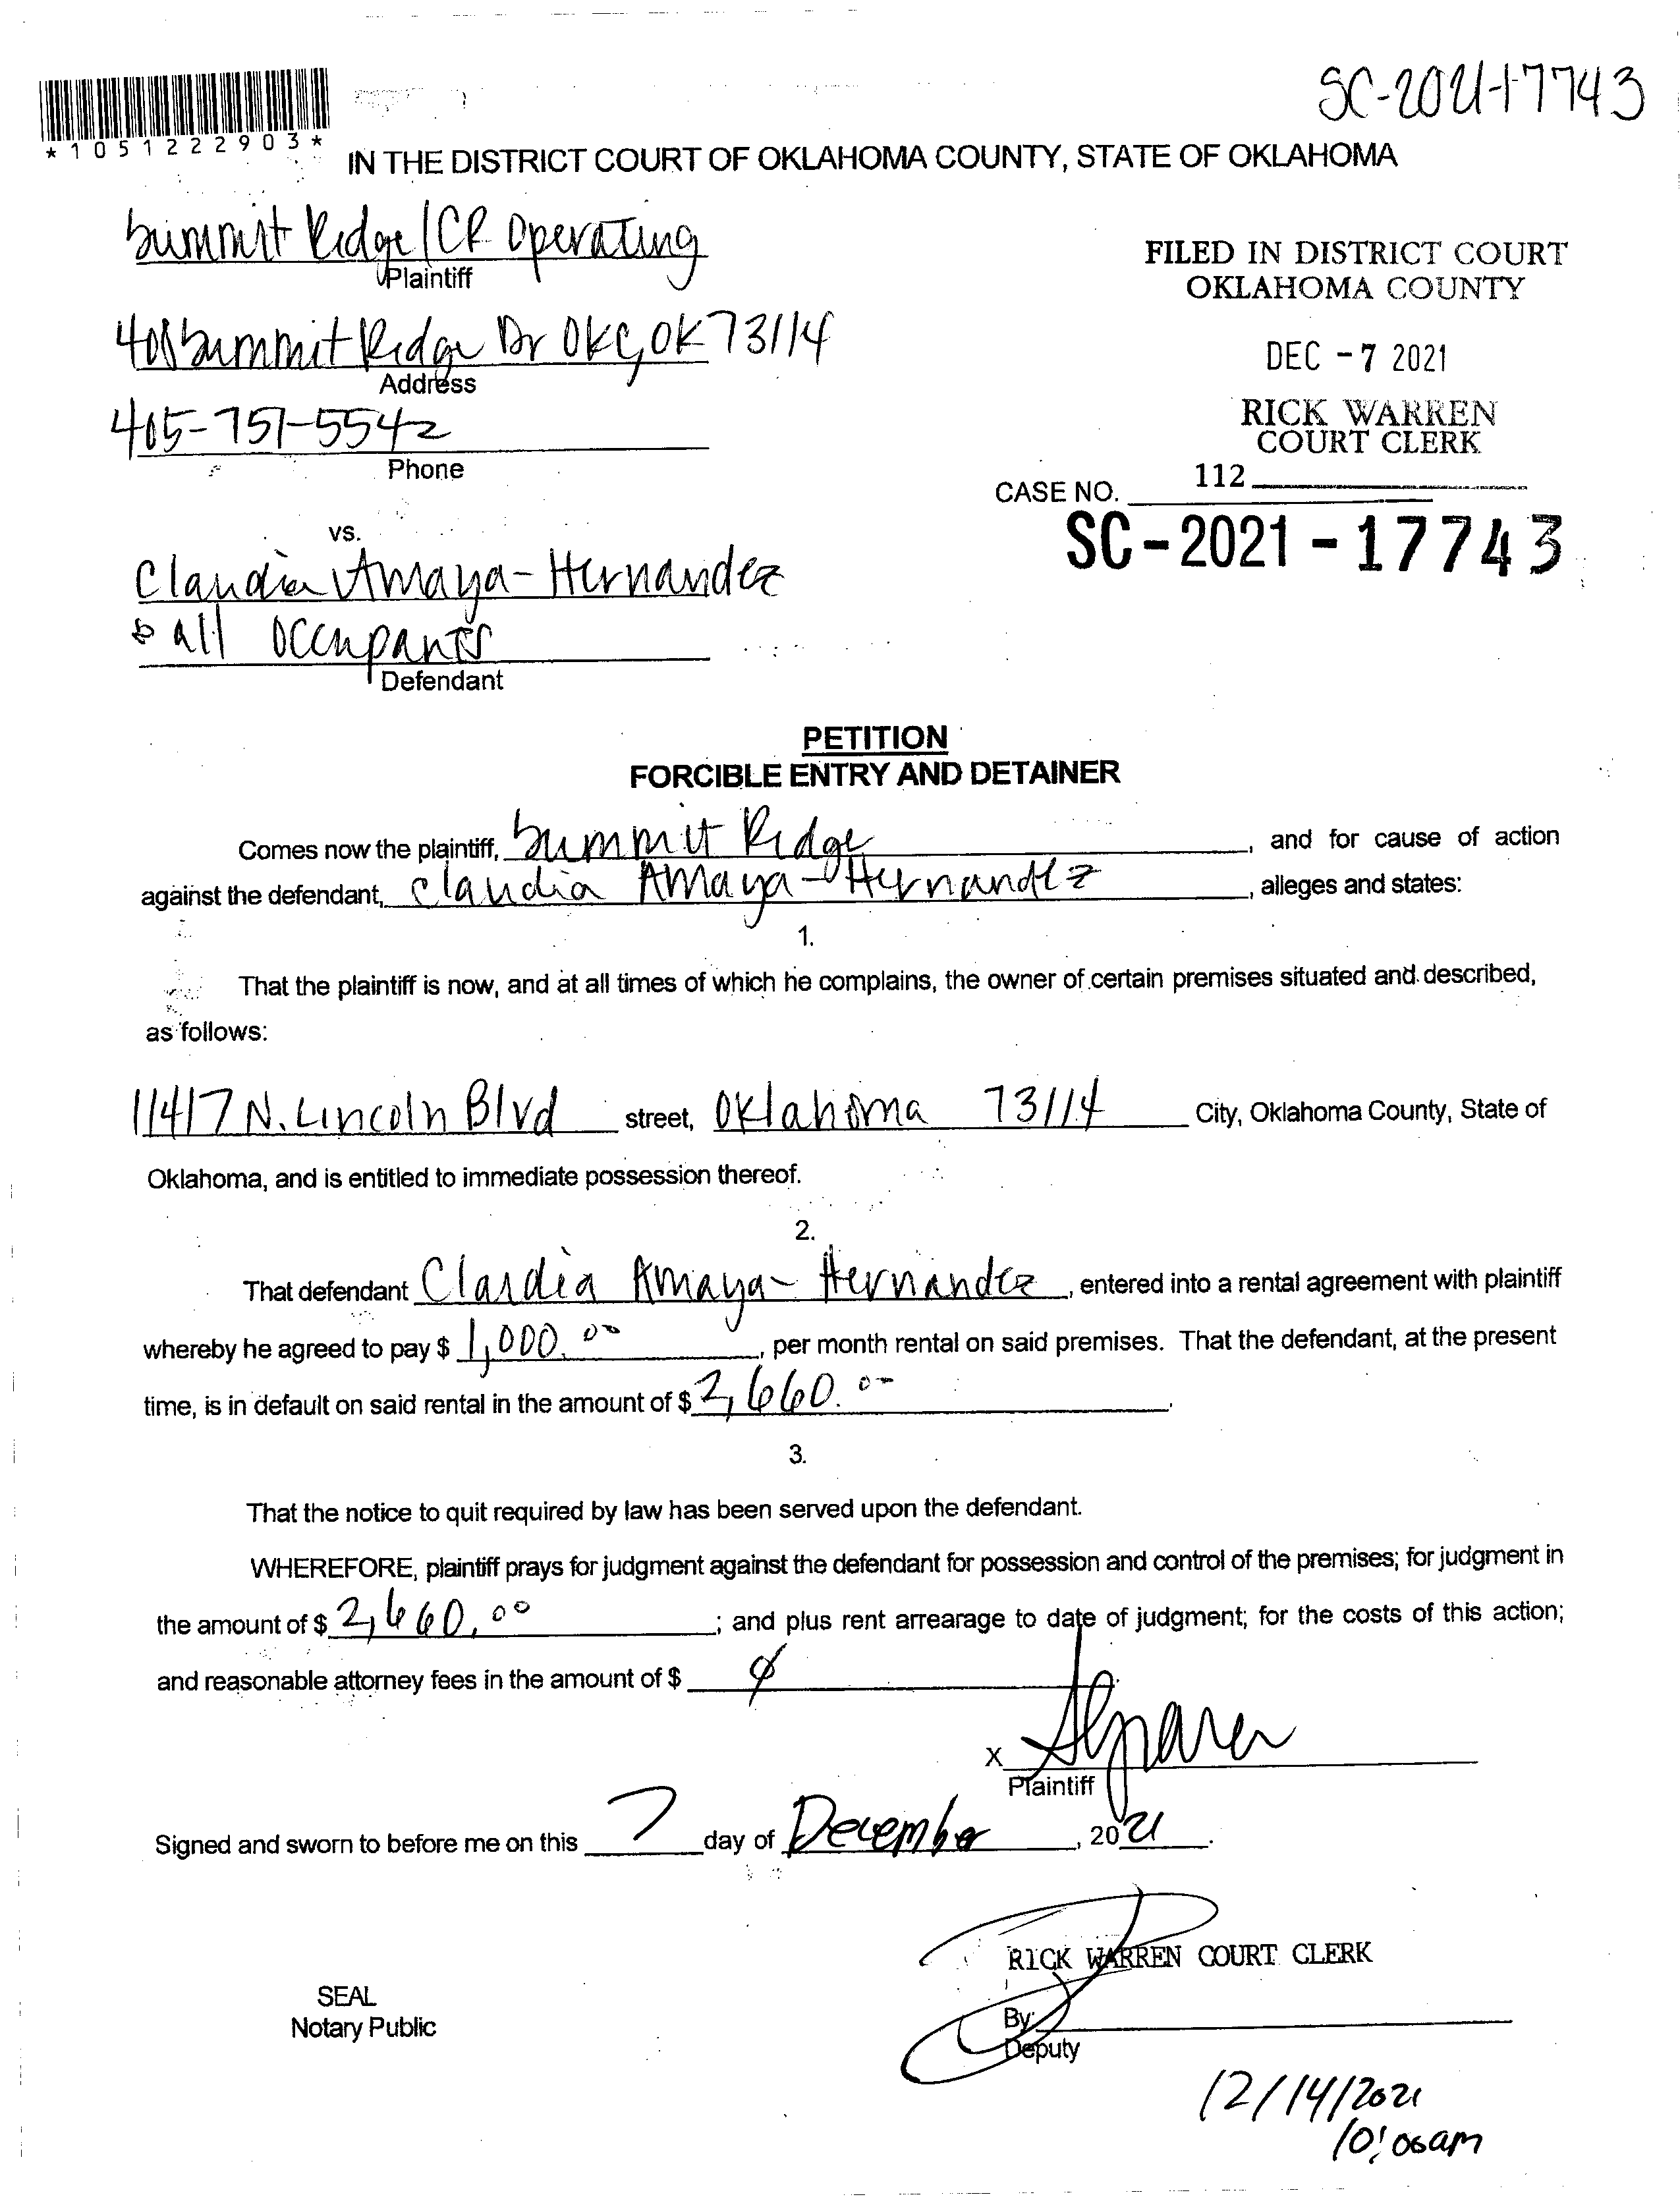 SC-2021-17743
*1051222903*
IN THE DISTRICT COURT OF OKLAHOMA COUNTY, STATE OF OKLAHOMA
Summit Ridge/CR Operating
Plaintiff
FILED IN DISTRICT COURT
OKLAHOMA COUNTY
408 Summit Ridge Dr OKC, OK 73114
Address
DEC -7 2021
405-751-5542
Phone
RICK WARREN
COURT CLERK
112
CASE NO.
SC-2021-17743
vs.
Claudia Amaya-Hernandez
& all Occupants
Defendant
PETITION
FORCIBLE ENTRY AND DETAINER
Comes now the plaintiff, Summit Ridge, and for cause of action
against the defendant, Claudia Amaya-Hernandez, alleges and states:
1.
That the plaintiff is now, and at all times of which he complains, the owner of certain premises situated and described,
as follows:
11417 N. Lincoln Blvd street, Oklahoma 73114 City, Oklahoma County, State of
Oklahoma, and is entitled to immediate possession thereof.
2.
That defendant Claudia Amaya-Hernandez, entered into a rental agreement with plaintiff
whereby he agreed to pay $ 1,000.00, per month rental on said premises. That the defendant, at the present
time, is in default on said rental in the amount of $ 2,660.00.
3.
That the notice to quit required by law has been served upon the defendant.
WHEREFORE, plaintiff prays for judgment against the defendant for possession and control of the premises; for judgment in
the amount of $ 2,660.00; and plus rent arrearage to date of judgment; for the costs of this action;
and reasonable attorney fees in the amount of $ ∅
X
Plaintiff
Signed and sworn to before me on this 7 day of December, 2021.
RICK WARREN COURT CLERK
SEAL
Notary Public
By:
Deputy
12/14/2021
10:00am